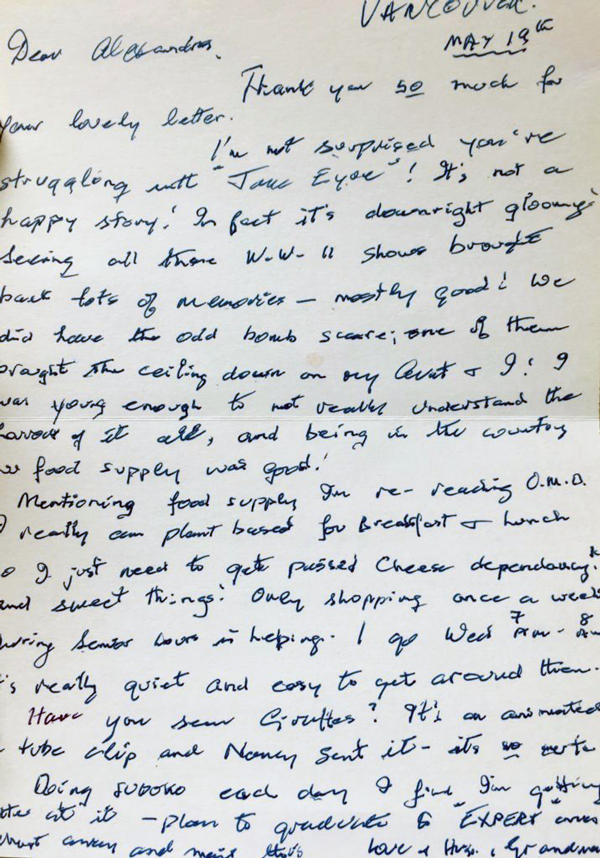 VANCOUVER.
MAY 19th
Dear Alexandra,
Thank you so much for
your lovely letter.
I'm not surprised you've
struggling with "Jane Eyre"! It's not a
happy story! In fact it's downright gloomy!
Seeing all those W.W. 11 shows brought
back lots of memories – mostly good! We
did have the odd bomb scare; one of them
brought the ceiling down on my Aunt & I! I
was young enough to not really understand the
horror of it all, and being in the country
food supply was good!
Mentioning food supply I'm re-reading O.M.D.
I really am plant based for Breakfast & Lunch
so I just need to get passed Cheese dependancy!
and sweet things! Only shopping once a week
during Senior hours is helping. I go Wed 7am - 8am
it's really quiet and easy to get around then.
Have you seen Giraffes? It's an animated
tube clip and Nancy sent it – its so
Doing SUDOKO each day I find I'm getting
at it – plan to graduate to "EXPERT"
away and
Love & Hugs, Grandma